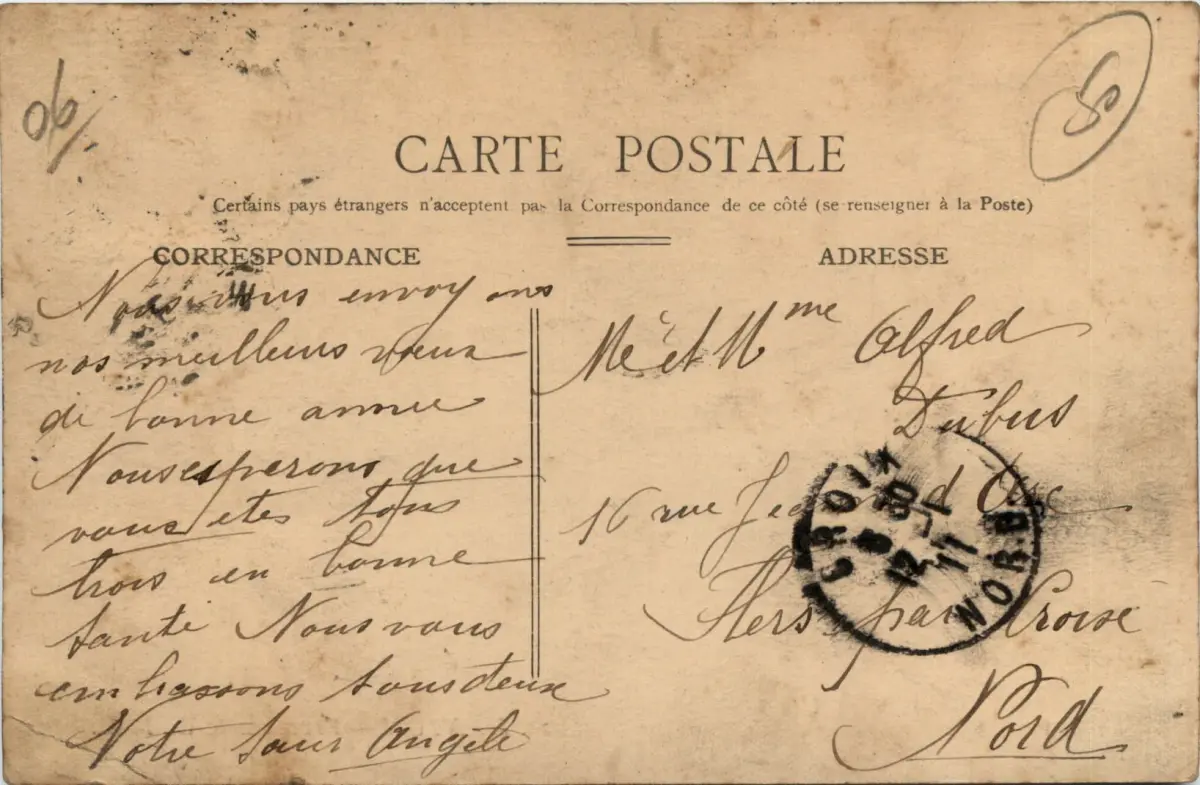 06
50
CARTE POSTALE
Certains pays étrangers n'acceptent pas la Correspondance de ce côté (se renseigner à la Poste)
CORRESPONDANCE
Nous vous envoyons
nos meilleurs vœux
de bonne annee
Nous esperons que
vous etes tous
trois en bonne
santé Nous vous
embrassons tous deux
Votre sœur Angèle
ADRESSE
Mr et Mme Alfred
Dubus
16 rue Jea d'Arc
Flers par Croix
Nord
CROIX
NORD
8
12
11